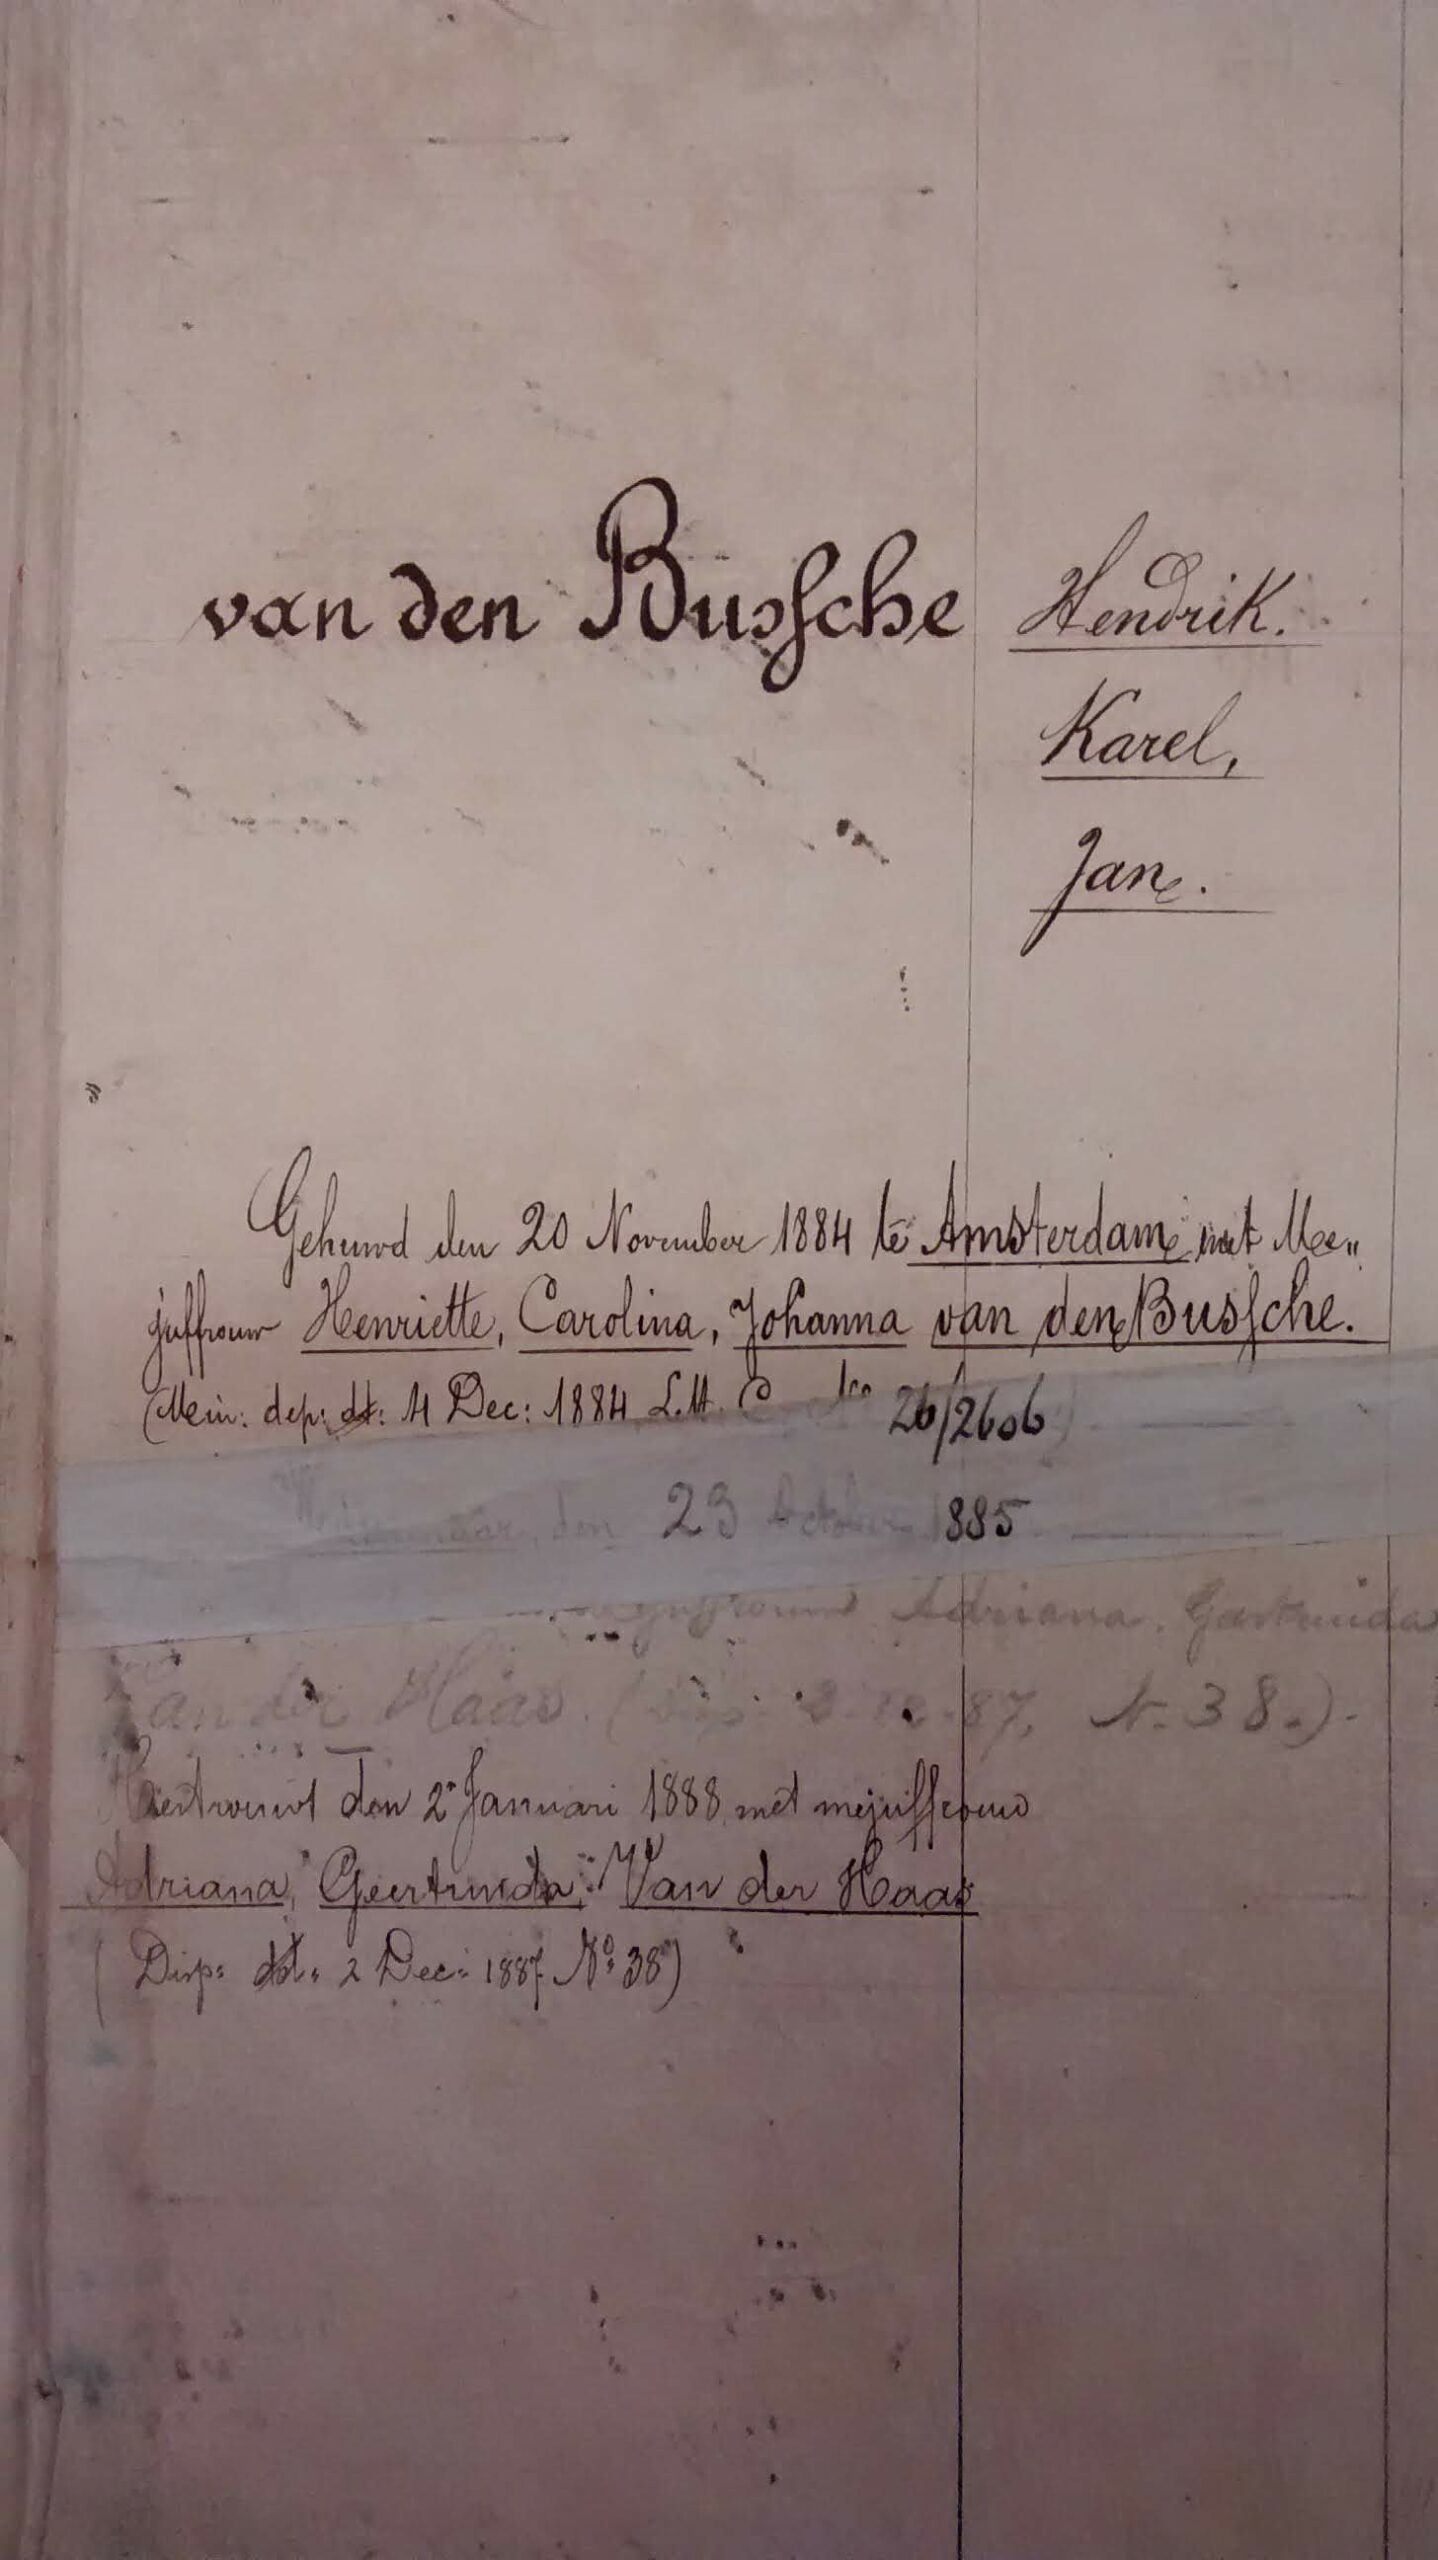 van den Bussche
Hendrik.
Karel,
Jan.
Gehuwd den 20 November 1884 te Amsterdam met Me„
juffrouw Henriette, Carolina, Johanna van den Bussche.
(Mein: dep: dd: 4 Dec: 1884 L.M. 26/2606
Weduwnaar den 23 October 1885
mejuffrouw Adriana. Geertruida
van der Haas. 87. N. 38.)
Hertrouwt den 2e Januari 1888 met mejuffrouw
Adriana, Geertruida, Van der Haas
(Disp: dd. 2 Dec: 1887 No 38)